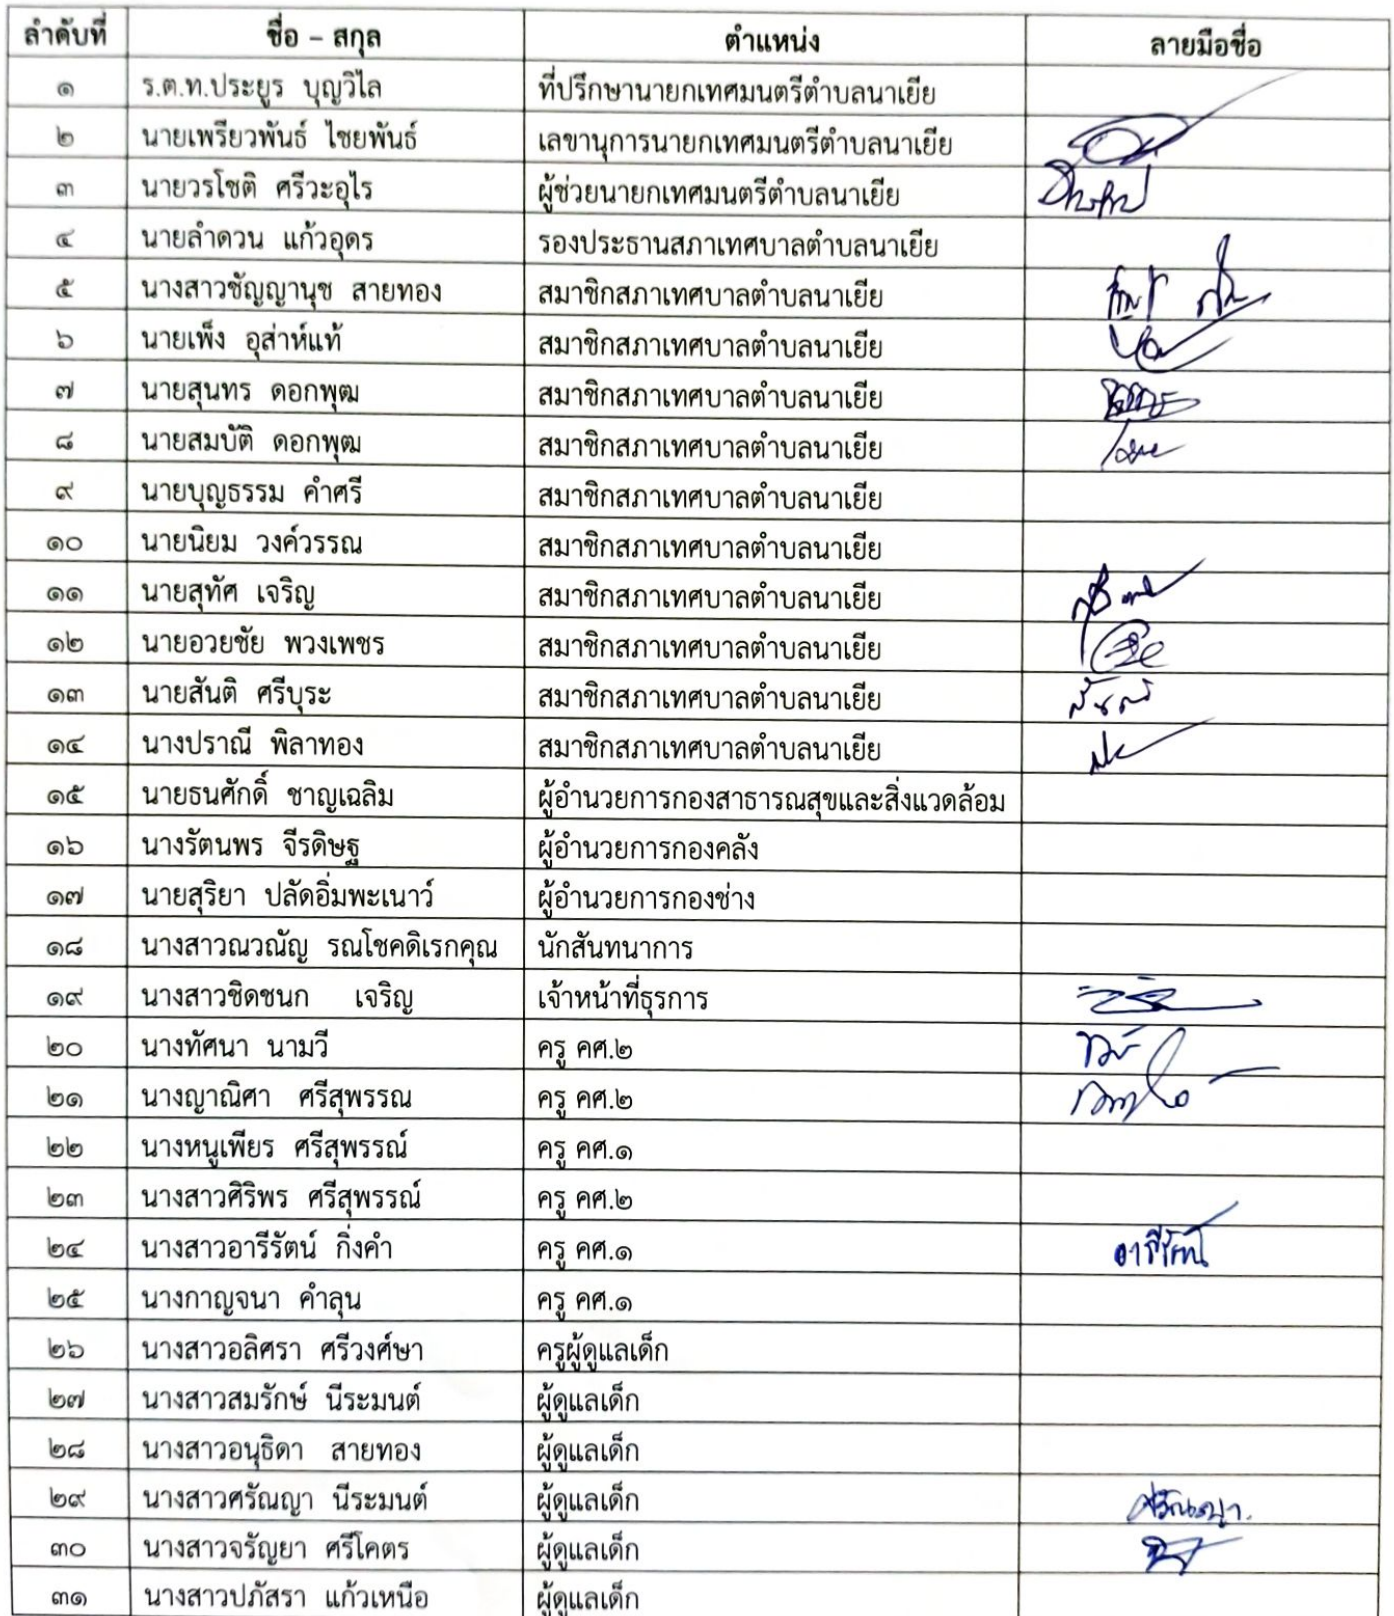 ลำดับที่ ชื่อ – สกุล ตำแหน่ง ลายมือชื่อ
๑ ร.ต.ท.ประยูร บุญวิไล ที่ปรึกษานายกเทศมนตรีตำบลนาเยีย
๒ นายเพรียวพันธ์ ไชยพันธ์ เลขานุการนายกเทศมนตรีตำบลนาเยีย
๓ นายวรโชติ ศรีวะอุไร ผู้ช่วยนายกเทศมนตรีตำบลนาเยีย
๔ นายลำดวน แก้วอุดร รองประธานสภาเทศบาลตำบลนาเยีย
๕ นางสาวชัญญานุช สายทอง สมาชิกสภาเทศบาลตำบลนาเยีย
๖ นายเพ็ง อุส่าห์แท้ สมาชิกสภาเทศบาลตำบลนาเยีย
๗ นายสุนทร ดอกพุฒ สมาชิกสภาเทศบาลตำบลนาเยีย
๘ นายสมบัติ ดอกพุฒ สมาชิกสภาเทศบาลตำบลนาเยีย
๙ นายบุญธรรม คำศรี สมาชิกสภาเทศบาลตำบลนาเยีย
๑๐ นายนิยม วงค์วรรณ สมาชิกสภาเทศบาลตำบลนาเยีย
๑๑ นายสุทัศ เจริญ สมาชิกสภาเทศบาลตำบลนาเยีย
๑๒ นายอวยชัย พวงเพชร สมาชิกสภาเทศบาลตำบลนาเยีย
๑๓ นายสันติ ศรีบุระ สมาชิกสภาเทศบาลตำบลนาเยีย
๑๔ นางปราณี พิลาทอง สมาชิกสภาเทศบาลตำบลนาเยีย
๑๕ นายธนศักดิ์ ชาญเฉลิม ผู้อำนวยการกองสาธารณสุขและสิ่งแวดล้อม
๑๖ นางรัตนพร จีรดิษฐ ผู้อำนวยการกองคลัง
๑๗ นายสุริยา ปลัดอิ่มพะเนาว์ ผู้อำนวยการกองช่าง
๑๘ นางสาวณวณัญ รณโชคดิเรกคุณ นักสันทนาการ
๑๙ นางสาวชิดชนก เจริญ เจ้าหน้าที่ธุรการ
๒๐ นางทัศนา นามวี ครู คศ.๒
๒๑ นางญาณิศา ศรีสุพรรณ ครู คศ.๒
๒๒ นางหนูเพียร ศรีสุพรรณ์ ครู คศ.๑
๒๓ นางสาวศิริพร ศรีสุพรรณ์ ครู คศ.๒
๒๔ นางสาวอารีรัตน์ กิ่งคำ ครู คศ.๑ อารีรัตน์
๒๕ นางกาญจนา คำลุน ครู คศ.๑
๒๖ นางสาวอลิศรา ศรีวงศ์ษา ครูผู้ดูแลเด็ก
๒๗ นางสาวสมรักษ์ นีระมนต์ ผู้ดูแลเด็ก
๒๘ นางสาวอนุธิดา สายทอง ผู้ดูแลเด็ก
๒๙ นางสาวศรัณญา นีระมนต์ ผู้ดูแลเด็ก
๓๐ นางสาวจรัญยา ศรีโคตร ผู้ดูแลเด็ก
๓๑ นางสาวปภัสรา แก้วเหนือ ผู้ดูแลเด็ก